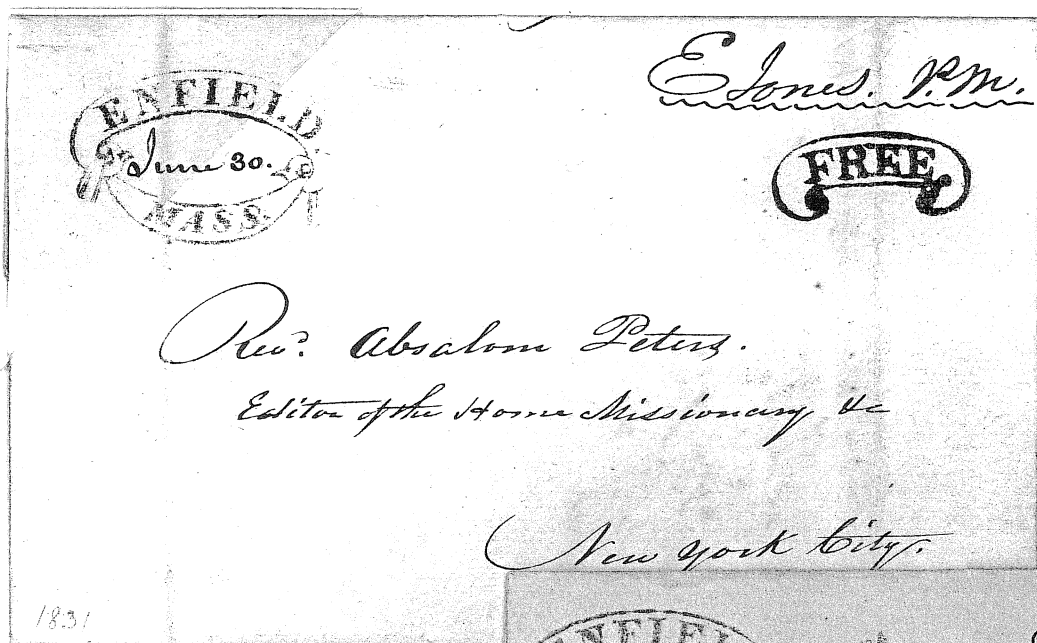 E Jones. P.M.
ENFIELD.
June 30.
MASS.
FREE
Revd. Absalom Peters.
Editor of the Home Missionary &c
New York City.
1831
ENFIEL